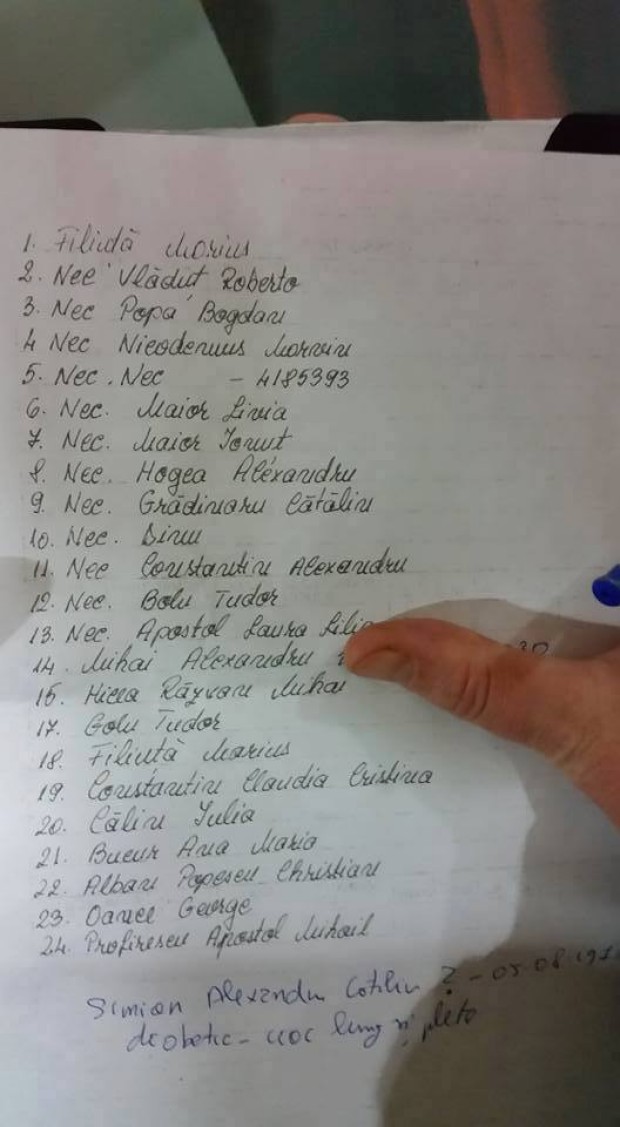 1. Filiuță Marius
2. Nec Vlăduț Roberto
3. Nec Popa Bogdan
4 Nec Nicodemus Marvin
5. Nec. Nec - 4185393
6. Nec. Maior Livia
7. Nec. Maior Ionuț
8. Nec. Hogea Alexandru
9. Nec. Grădinaru Cătălin
10. Nec. Dinu
11. Nec Constantin Alexandru
12. Nec. Bolu Tudor
13. Nec. Apostol Laura Lilia
14. Mihai Alexandru
15. Hiera Răzvan Mihai
17. Golu Tudor
18. Filiuță Marius
19. Constantin Claudia Cristina
20. Călin Iulia
21. Bucur Ana Maria
22. Alban Popescu Christian
23. George
24. Profirescu Apostol Mihail
Simion Alexandru ? - 05.08.197